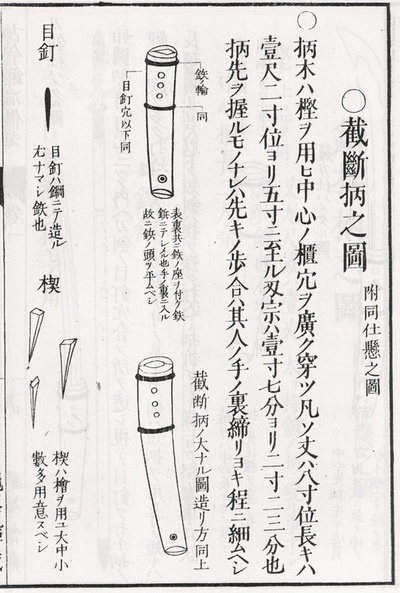 ○截斷柄之圖
附同仕懸之圖
○柄木ハ樫ヲ用ヒ中心ノ櫃穴ヲ廣ク穿ツ凡ソ丈ハ八寸位長キハ
壹尺二寸位ヨリ五寸ニ至ル叉宗ハ壹寸七分ヨリ二寸二三分也
柄先ヲ握ルモノナレハ先キノ歩ノ合ハ其人ノ手ノ裏締リヨキ程ニ細ムベシ
鉄ノ輪
同
目釘穴以下同
表裏共ニ鉄ノ座ヲ付ク鉄
鋲ニテシメル也手ノ裏ニ入ル
故ニ鋲ノ頭ヲ平ムベシ
截斷柄ノ大ナル圖造リ方同上
目釘
目釘ハ鋼ニテ造ル
尤ナマシ鉄也
楔
楔ハ檜ヲ用ユ大中小
數多用意スベシ